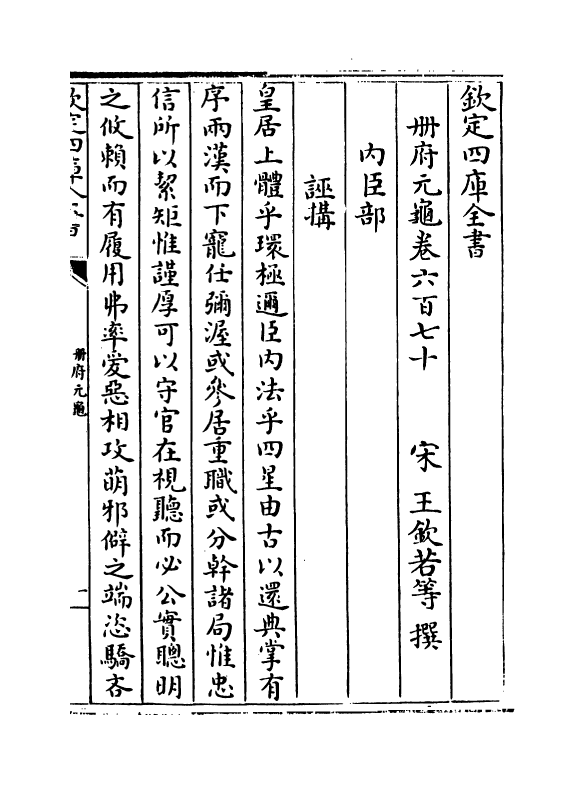 欽定四庫全書
册府元龜卷六百七十　宋　王欽若等　撰
内臣部
誣搆
皇居上體乎環極邇臣内法乎四星由古以還典掌有
序兩漢而下寵任彌渥或參居重職或分幹諸局惟忠
信所以絜矩惟謹厚可以守官在視聽而必公實聰明
之攸賴而有履用弗率愛惡相攻萌邪僻之端恣驕吝
册府元龜
一